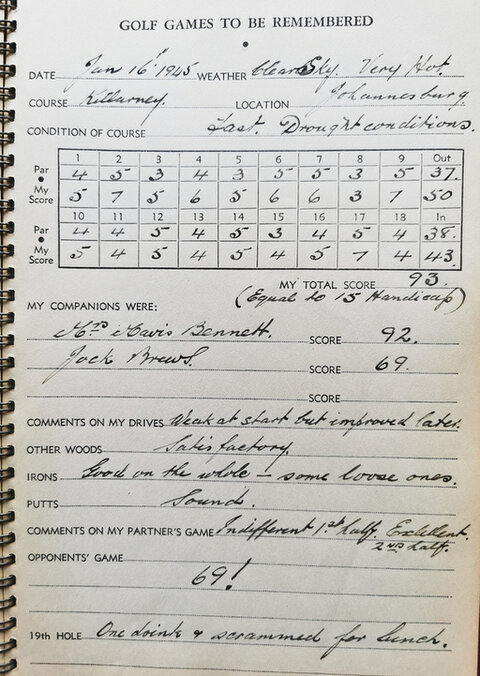 GOLF GAMES TO BE REMEMBERED
DATE Jan 16' 1945 WEATHER Clear Sky. Very Hot.
COURSE Killarney. LOCATION Johannesburg.
CONDITION OF COURSE Fast. Drought conditions.
1 2 3 4 5 6 7 8 9 Out
Par 4 5 3 4 3 5 5 3 5 37.
My Score 5 7 5 6 5 6 6 3 7 50
10 11 12 13 14 15 16 17 18 In
Par 4 4 5 4 5 3 4 5 4 38.
My Score 5 4 5 4 5 4 5 7 4 43
MY TOTAL SCORE 93.
(Equal to 15 Handicap)
MY COMPANIONS WERE:
Mrs Mavis Bennett. SCORE 92.
Jock Brews. SCORE 69.
SCORE
COMMENTS ON MY DRIVES Weak at start but improved later.
OTHER WOODS Satisfactory.
IRONS Good on the whole – some loose ones.
PUTTS Sound.
COMMENTS ON MY PARTNER'S GAME Indifferent 1st half. Excellent.
2nd half.
OPPONENTS' GAME
69!
19th HOLE One drink & scrammed for lunch.